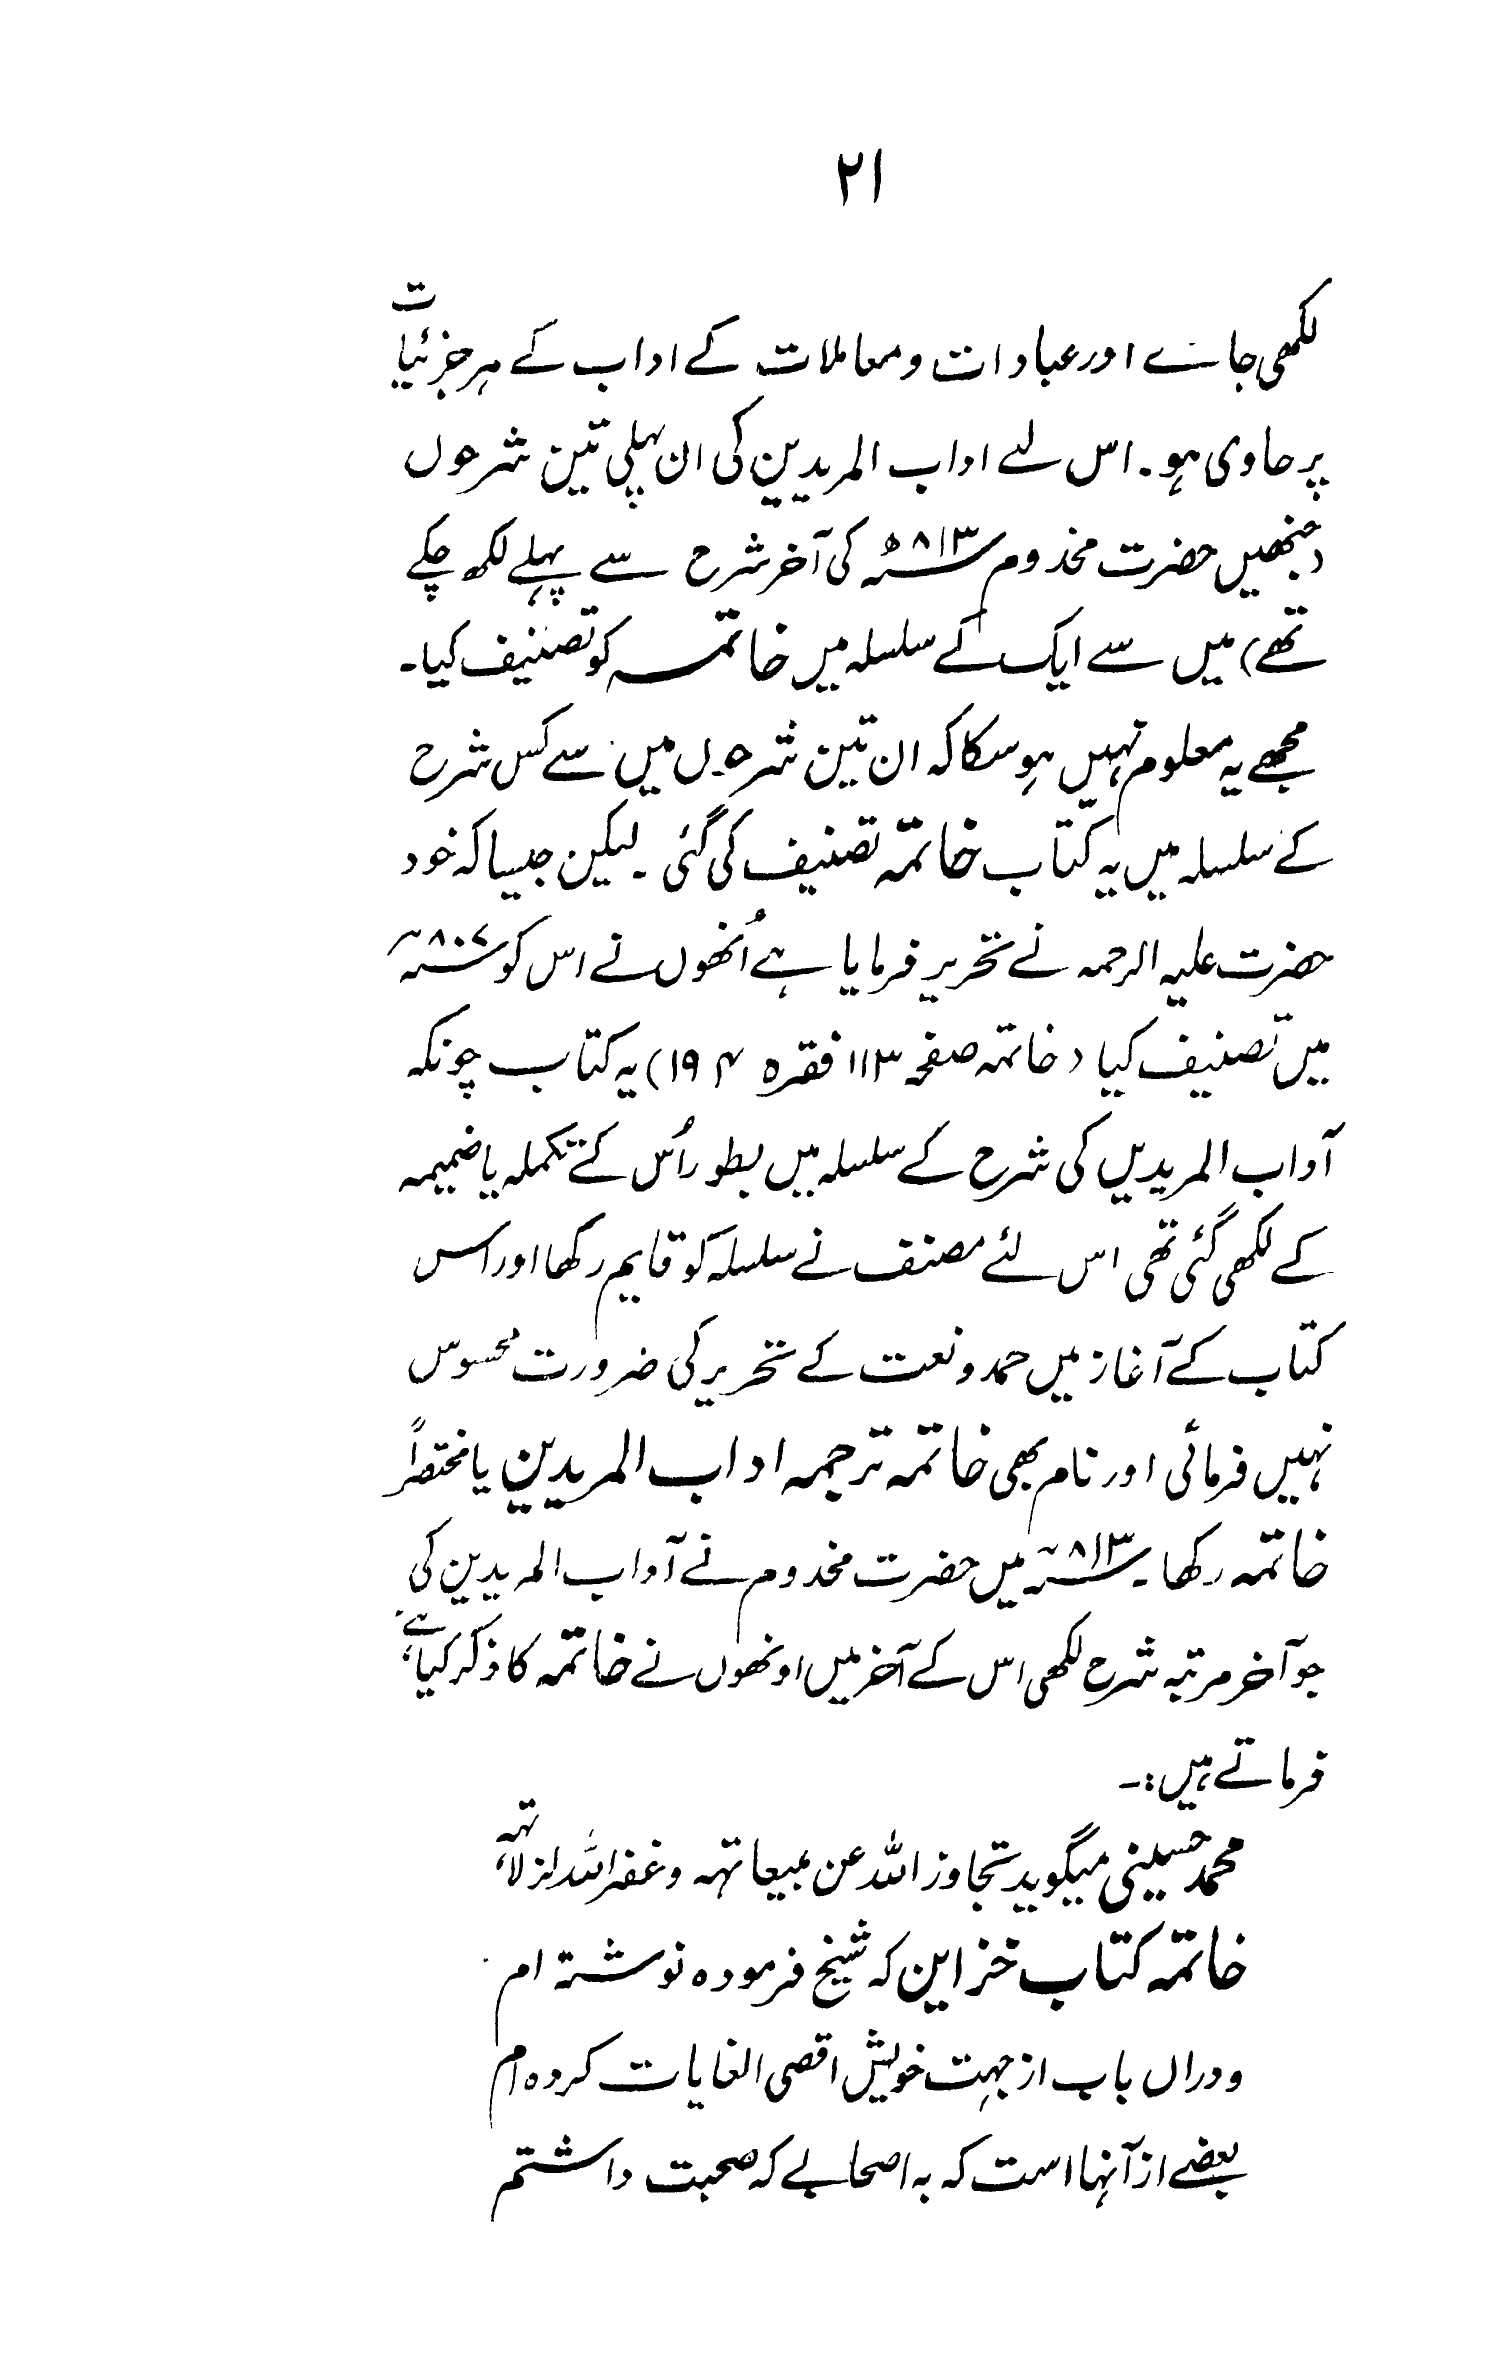 ۲۱
لکھی جائے اور عبادات و معاملات کے اداب کے ہر جزئیات
پر حاوی ہو۔ اس لئے اداب المریدین کی ان پہلی تین شرحوں
(جنھیں حضرت مخدوم ۸۱۳ھ کی آخر شرح سے پہلے لکھ چکے
تھے) میں سے ایک کے سلسلہ میں خاتمہ کو تصنیف کیا۔
مجھے یہ معلوم نہیں ہو سکا کہ ان تین شرحوں میں سے کس شرح
کے سلسلہ میں یہ کتاب خاتمہ تصنیف کی گئی۔ لیکن جیسا کہ خود
حضرت علیہ الرحمہ نے تحریر فرمایا ہے اُنھوں نے اس کو ۸۰۷ھ
میں تصنیف کیا (خاتمہ صفحہ ۱۱۳ فقرہ ۱۹۴) یہ کتاب چونکہ
آداب المریدین کی شرح کے سلسلہ میں بطور اُس کے تکملہ یا ضمیمہ
کے لکھی گئی تھی اس لئے مصنف نے سلسلہ کو قایم رکھا اور اس
کتاب کے آغاز میں حمد و نعت کے تحریر کی ضرورت محسوس
نہیں فرمائی اور نام بھی خاتمہ ترجمہ اداب المریدین یا مختصراً
خاتمہ رکھا۔ ۸۱۳ھ میں حضرت مخدوم نے آداب المریدین کی
جو آخر مرتبہ شرح لکھی اس کے آخر میں اونھوں نے خاتمہ کا ذکر کیا ہے
فرماتے ہیں:۔
محمد حسینی میگوید تجاوز اللہ عن مبیعاتہ و غفر اللہ لزلاتہ
خاتمہ کتاب خزاین کہ شیخ فرمودہ نوشتہ ام
و دراں باب از جہت خویش اقصی الغایات کردہ ام
بعضے از آنہا است کہ بہ اصحابے کہ صحبت داشتم